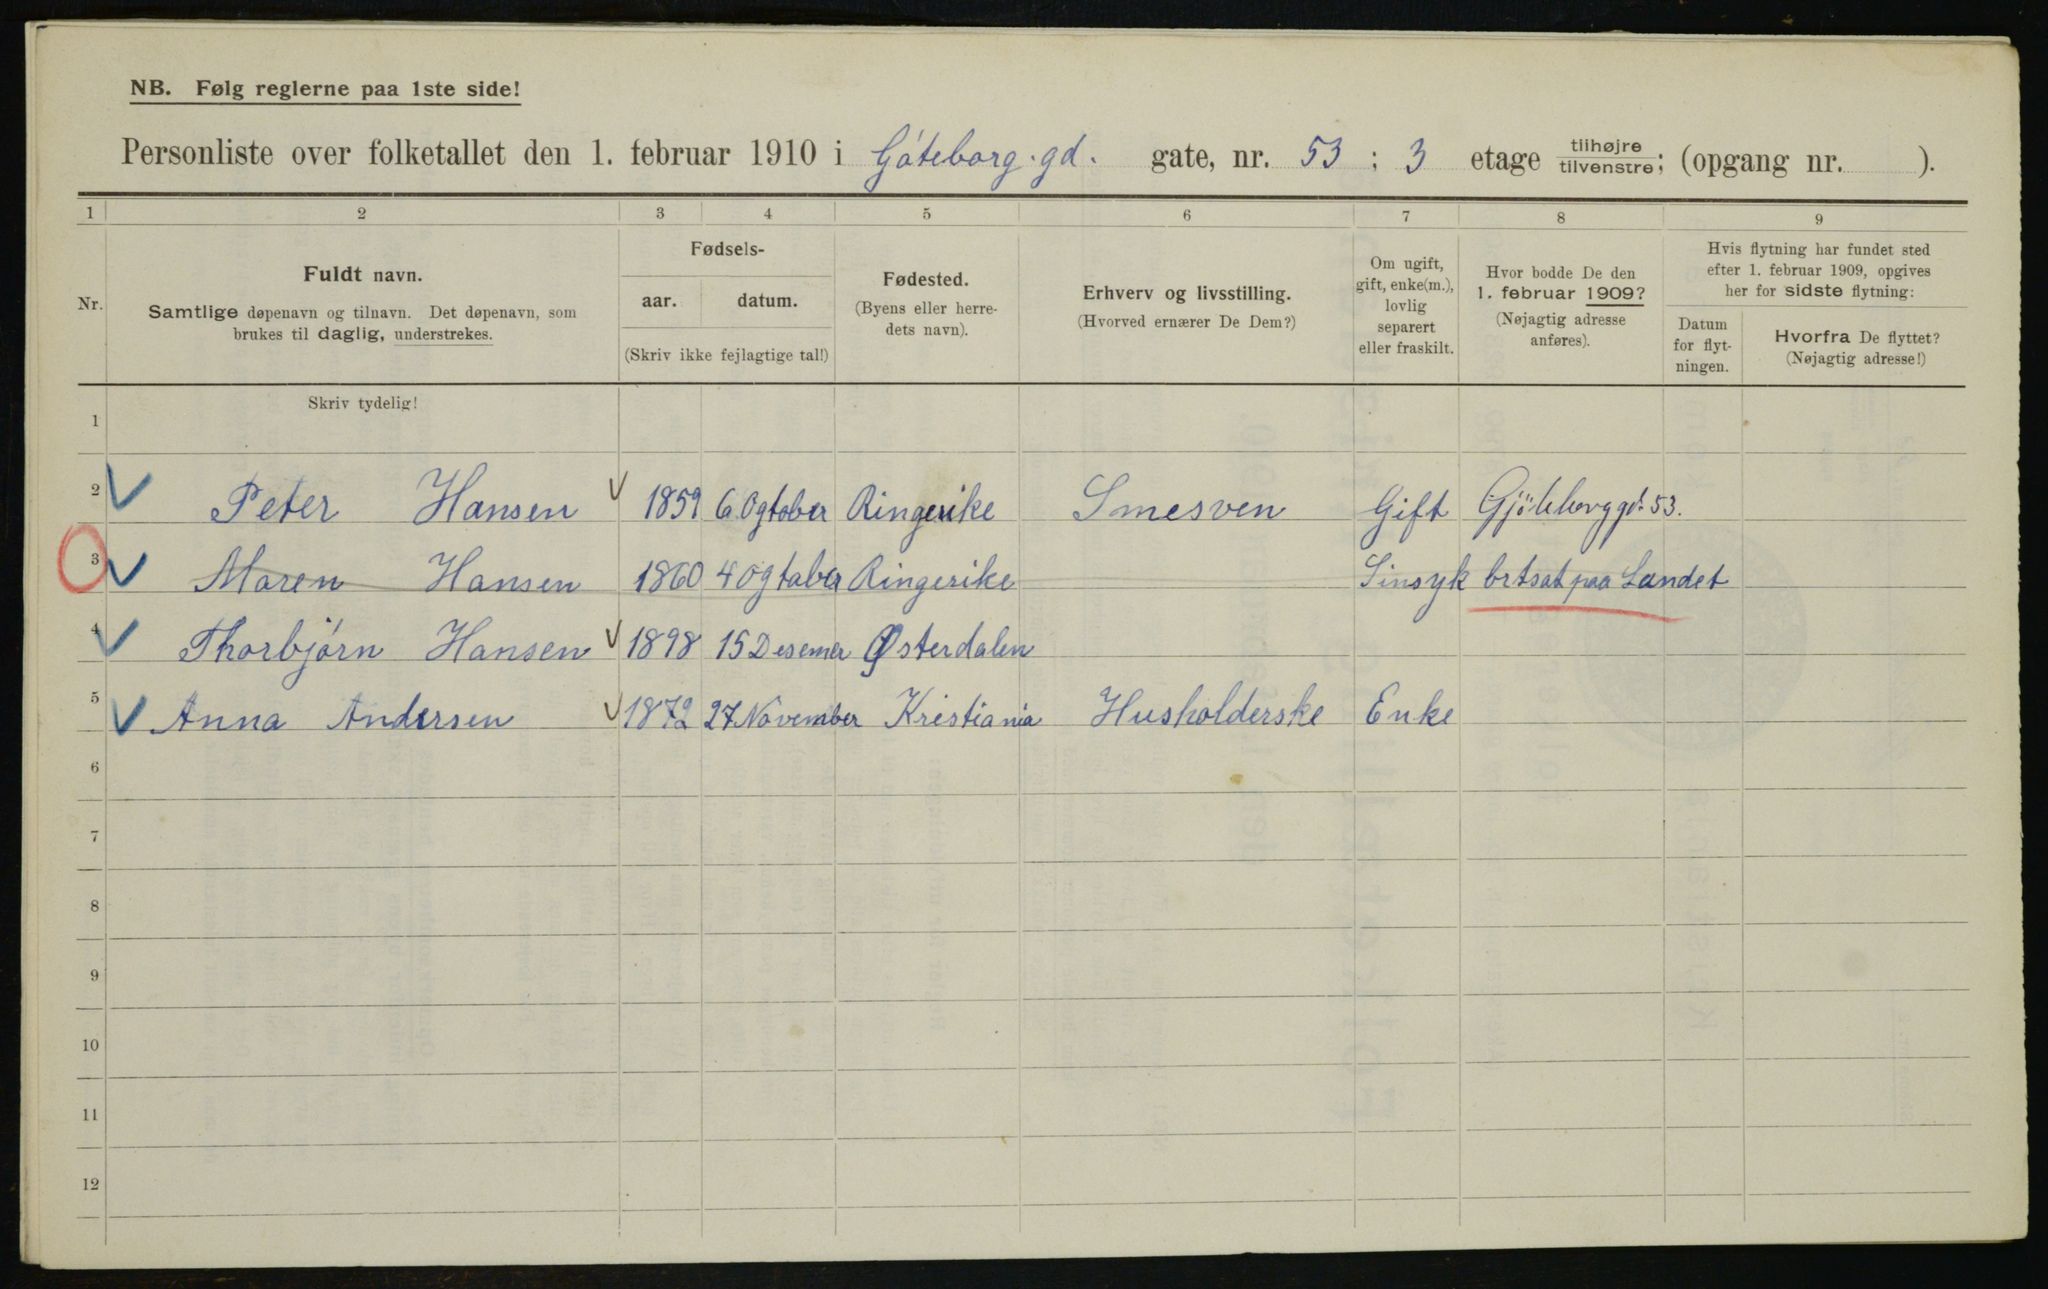 NB. Følg reglerne paa 1ste side!
Personliste over folketallet den 1. februar 1910 i Góteborg.gd. gate, nr. 53 ; 3 etage tilhøjre tilvenstre; (opgang nr. ).
1 2 3 4 5 6 7 8 9
Nr.
Fuldt navn.
Samtlige døpenavn og tilnavn. Det døpenavn, som
brukes til daglig, understrekes.
Fødsels-
aar. datum.
(Skriv ikke fejlagtige tal!)
Fødested.
(Byens eller herre-
dets navn).
Erhverv og livsstilling.
(Hvorved ernærer De Dem?)
Om ugift,
gift, enke(m.),
lovlig
separert
eller fraskilt.
Hvor bodde De den
1. februar 1909?
(Nøjagtig adresse
anføres).
Hvis flytning har fundet sted
efter 1. februar 1909, opgives
her for sidste flytning:
Datum
for flyt-
ningen.
Hvorfra De flyttet?
(Nøjagtig adresse!)
Skriv tydelig!
1
2 Peter Hansen 1859 6 Ogtober Ringerike Smesven Gift Gjöteborggd. 53.
3 Maren Hansen 1860 4 Ogtober Ringerike Sinsyk brtsat paa Landet
4 Thorbjórn Hansen 1898 15 Desemer Østerdalen
5 Anna Andersen 1872 27 November Kristiania Husholderske Enke
6
7
8
9
10
11
12